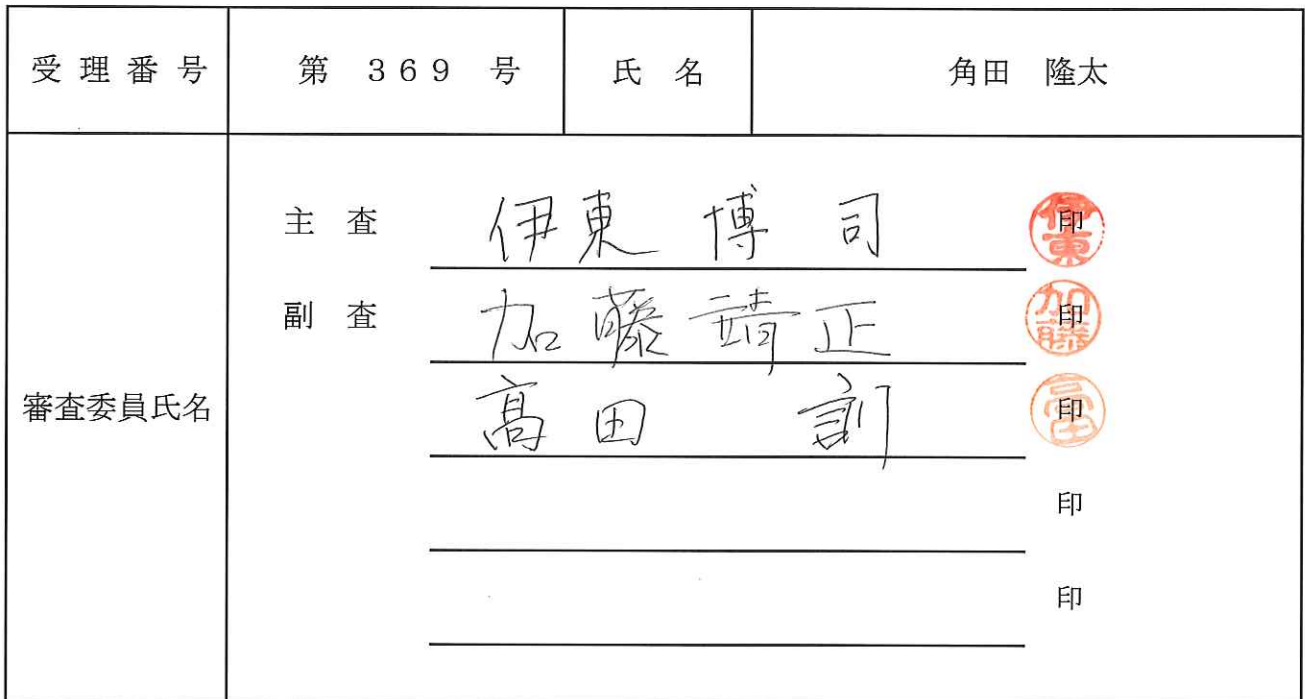 受理番号 第 369 号 氏 名 角田 隆太
審査委員氏名
主 査 伊東 博 司 印 伊東
副 査 加藤靖正 印 加藤
髙田 訓 印 髙田
印
印